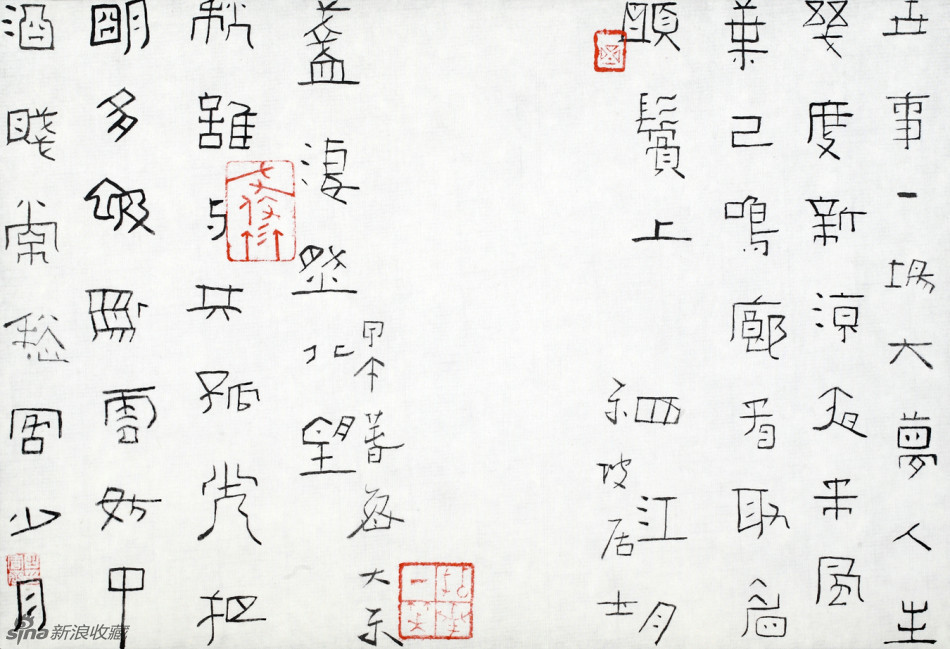 世事一場大夢人生
幾度新涼夜来風
葉已鳴廊看取眉
頭鬢上
西江月
东坡居士
酒賤常愁客少月
明多雲妨中
秋誰与共孤光把
盞淒然北望
甲午暮
sina新浪收藏